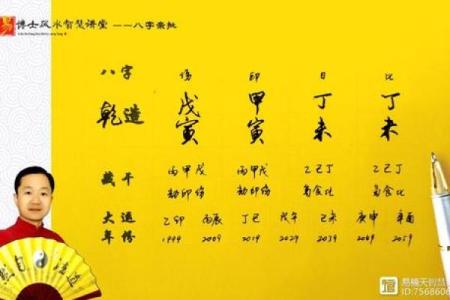 易 博士风水智慧讲堂 ——八字案批
八字 伤 印 日 比
乾造 戊 甲 丁 丁
寅 寅 未 未
藏干 丙甲戊 丙甲戊 乙己丁 乙己丁
劫印伤 劫印伤 枭食比 枭食比
大运 乙卯 丙辰 丁巳 戊午 己未 庚申 辛酉
年份 1999 2009 2019 2029 2039 2049 2059
ID:7568606